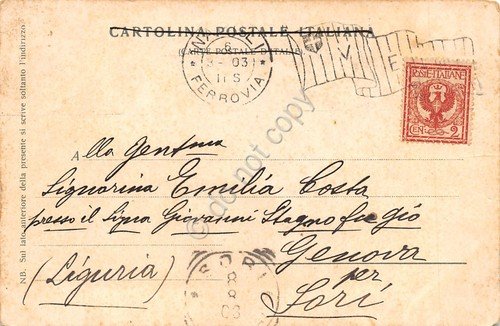 CARTOLINA POSTALE ITALIANA
(CARTE POSTALE D'ITALIE)
8
3-03
11 S
FERROVIA
V
E
POSTE ITALIANE
CEN. 2
NB. Sul lato anteriore della presente si scrive soltanto l'indirizzo.
Alla Gent.ma
Signorina Emilia Costa
presso il Signor Giovanni Stagno fu Gio
Genova
per
(Liguria)
Sori
SORI
8
8
03
do not copy